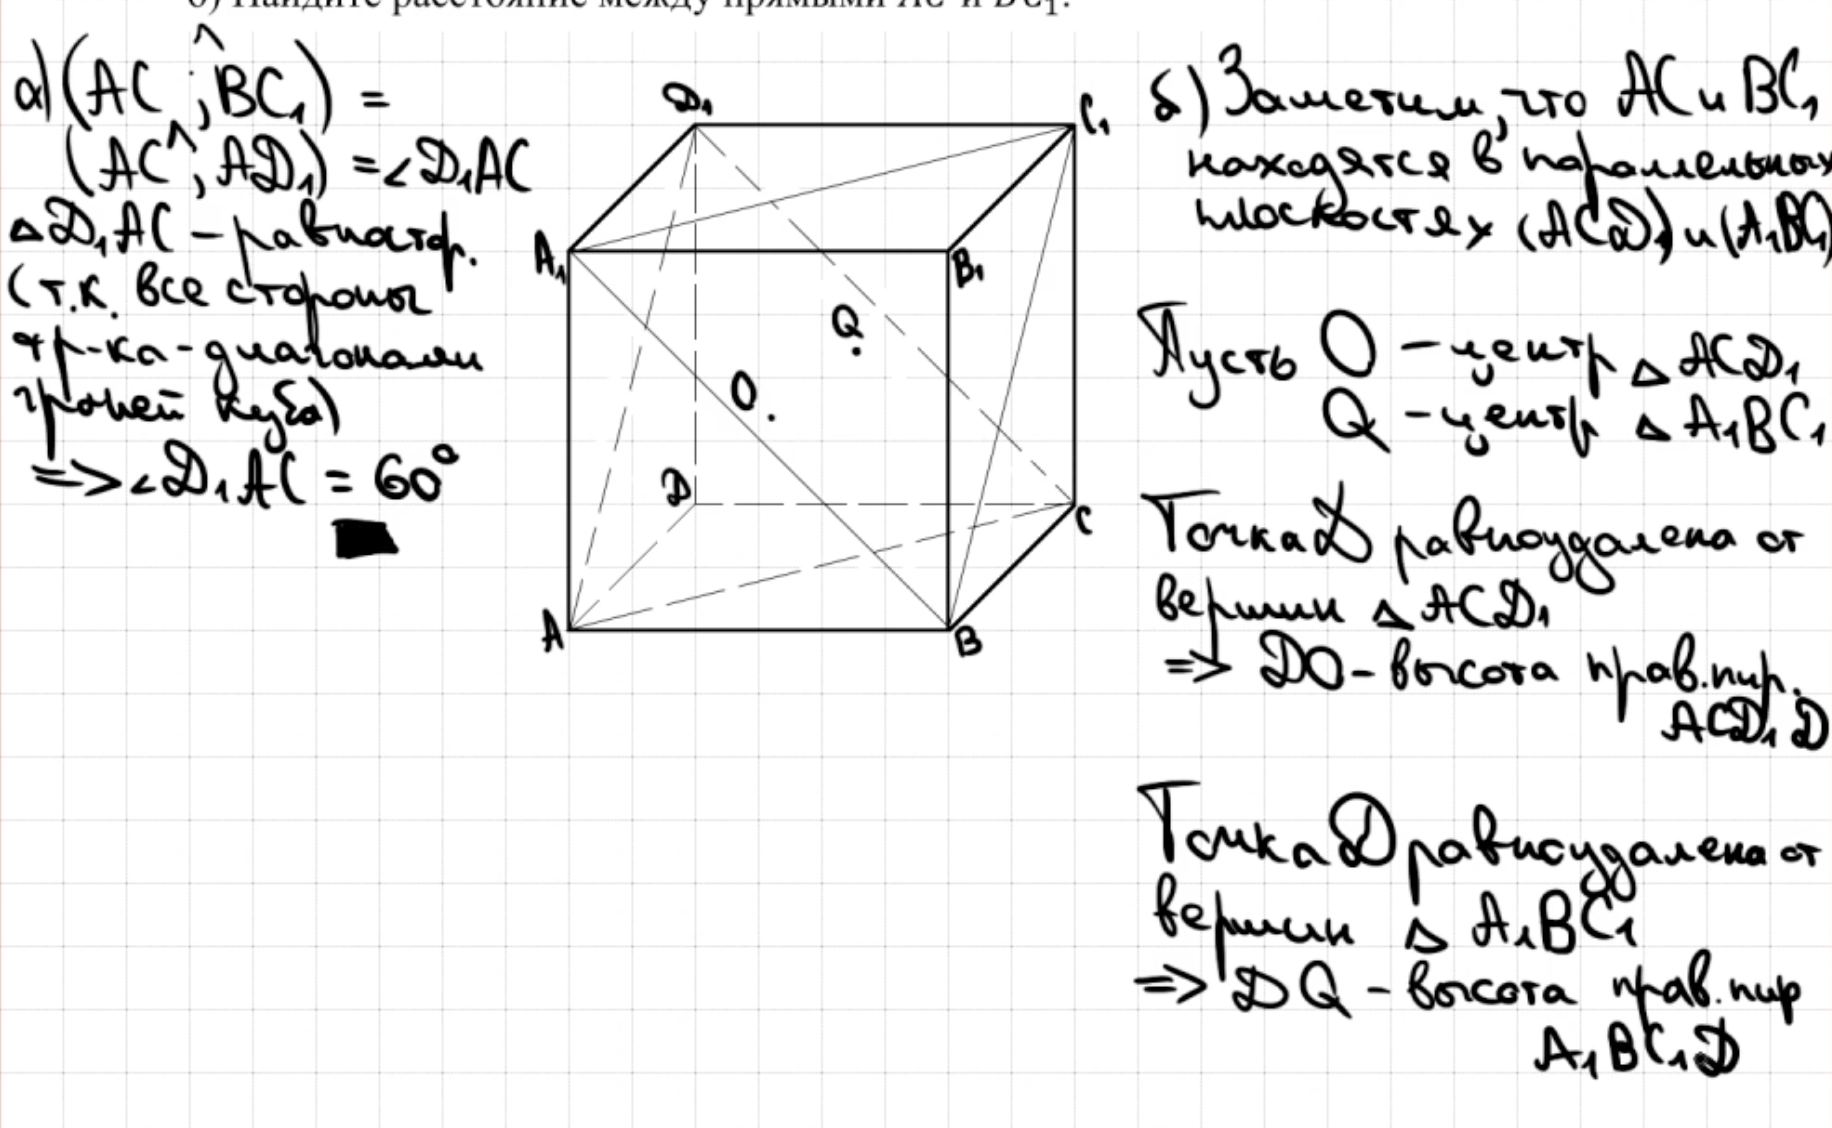 б) Найдите расстояние между прямыми AC и BC₁.
а) (AC ^; BC₁) =
(AC ^; AD₁) = ∠D₁AC
△D₁AC – равностор.
(т.к. все стороны
тр-ка – диагонали
граней куба)
=> ∠D₁AC = 60°
D₁
C₁
A₁
B₁
Q
O
D
C
A
B
б) Заметим, что AC и BC₁
находятся в параллельных
плоскостях (ACD₁) и (A₁BC₁)
Пусть O – центр △ ACD₁
Q – центр △ A₁BC₁
Точка D равноудалена от
вершин △ ACD₁
=> DO – высота прав. пир.
ACD₁D
Точка D равноудалена от
вершин △ A₁BC₁
=> DQ – высота прав. пир
A₁BC₁D